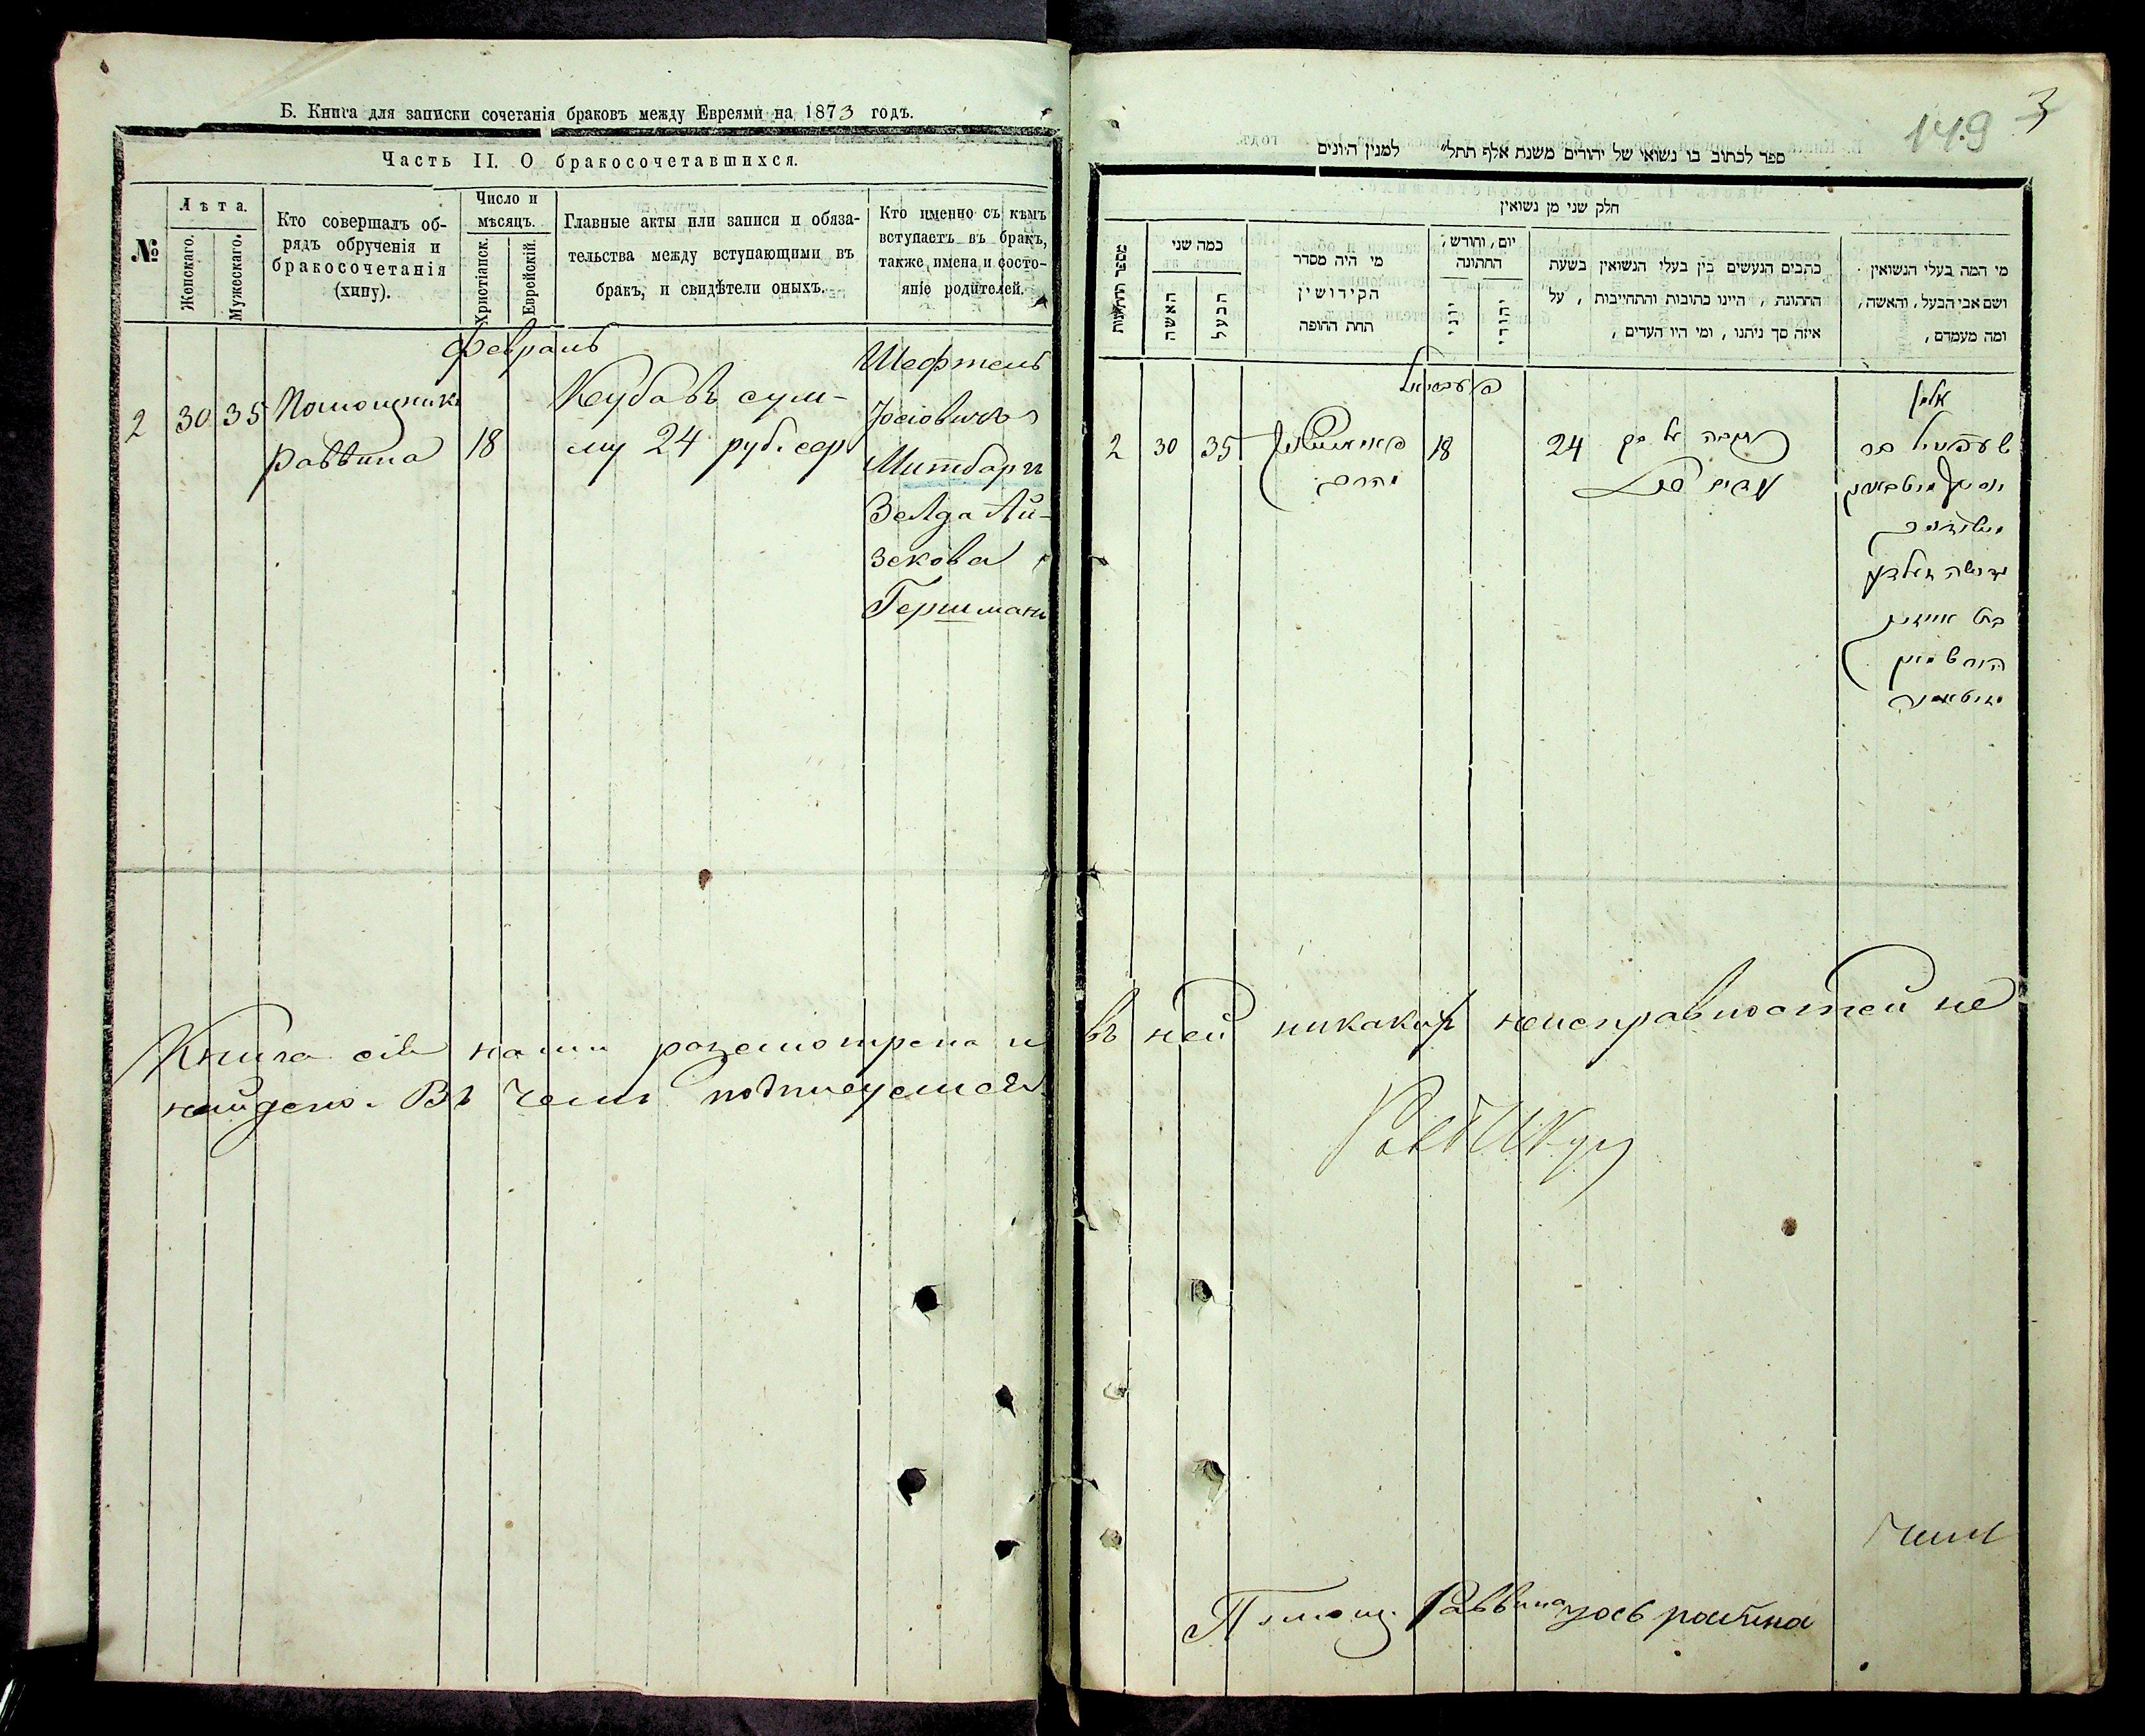 Б. Книга для записки сочетанія браковъ между Евреями на 1873 годъ.
Часть II. О бракосочетавшихся.
№
Лѣта.
Женскаго.
Мужескаго.
Кто совершалъ об-
рядъ обрученія и
бракосочетанія
(хипу).
Число и
мѣсяцъ.
Христіанск.
Еврейскій.
Главные акты или записи и обяза-
тельства между вступающими въ
бракъ, и свидѣтели оныхъ.
Кто именно съ кѣмъ
вступаетъ въ бракъ,
также имена и состо-
яніе родителей.
февраль
2
30
35
Помощникъ
Раввина
18
сум-
му 24 руб. сер
Шефтель
Митбаргъ
Зелда Ай-
зекова
Гершманъ
Книга сія нами разсмотрена и
найдено. Въ чемъ подписуемся
149
3
ספר לכתוב בו נשואי של יהודים משנת אלף תתל״ למנין היונים
חלק שני מן נשואין
מספר החתונות
כמה שני
האשה
הבעל
מי היה מסדר
הקידושין
תחת החופה
יום, וחודש,
החתונה
יוני
יהודי
כתבים הנעשים בין בעלי הנשואין בשעת
החתונה, היינו כתובות והתחייבות, על
איזה סך ניתנו, ומי היו העדים,
מי המה בעלי הנשואין
ושם אבי הבעל, והאשה,
ומה מעמדם,
2
30
35
18
24
въ ней никакихъ неисправностей не
Помощ. Раввина